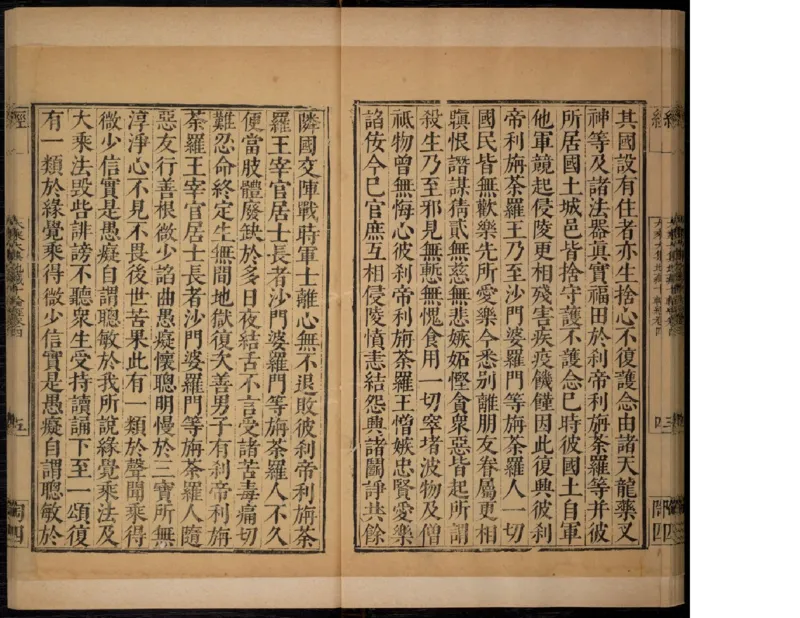 其國設有住者亦生捨心不復護念由諸天龍藥叉
神等及諸法器真實福田於刹帝利旃荼羅等并彼
所居國土城邑皆捨守護不護念已時彼國土自軍
他軍競起侵陵更相殘害疾疫饑饉因此復興彼刹
帝利旃荼羅王乃至沙門婆羅門等旃荼羅人一切
國民皆無歡樂先所愛樂今悉別離朋友眷屬更相
瞋恨潛謀猜貳無慈無悲嫉妬慳貪眾惡皆起所謂
殺生乃至邪見無慚無愧食用一切窣堵波物及僧
祇物曾無悔心彼刹帝利旃荼羅王憎嫉忠賢愛樂
諂佞令己官庶互相侵陵憤恚結怨興諸鬪諍共餘
隣國交陣戰時軍士離心無不退敗彼刹帝利旃荼
羅王宰官居士長者沙門婆羅門等旃荼羅人不久
便當肢體廢缺於多日夜結舌不言受諸苦毒痛切
難忍命終定生無間地獄復次善男子有刹帝利旃
荼羅王宰官居士長者沙門婆羅門等旃荼羅人隨
惡友行善根微少諂曲愚癡懷聰明慢於三寶所無
淳淨心不見不畏後世苦果此有一類於聲聞乘得
微少信實是愚癡自謂聰敏於我所說緣覺乘法及
大乘法毀呰誹謗不聽眾生受持讀誦下至一頌復
有一類於緣覺乘得微少信實是愚癡自謂聰敏於